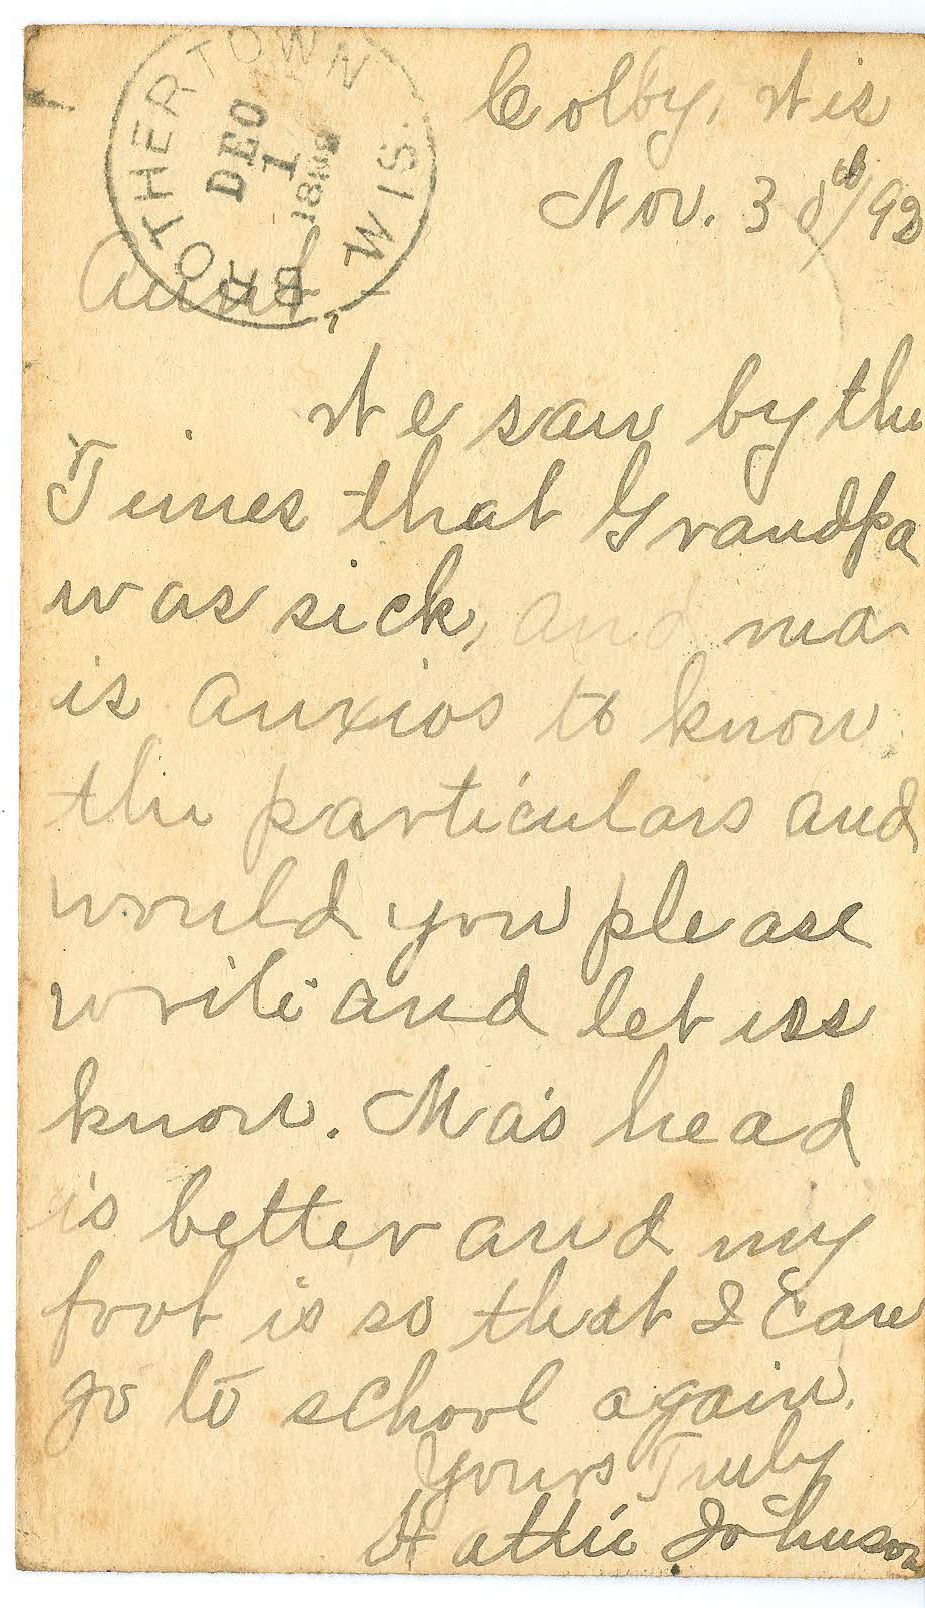 BROTHERTOWN WIS.
DEC
1
Colby, Wis
Nov. 30th/92
Aunt,
We saw by the
Times that Grandpa
was sick, and ma
is anxios to know
the particulars and
would you please
write and let us
know. Ma's head
is better and my
foot is so that I can
go to school again.
Yours Truly
Hattie Johnson